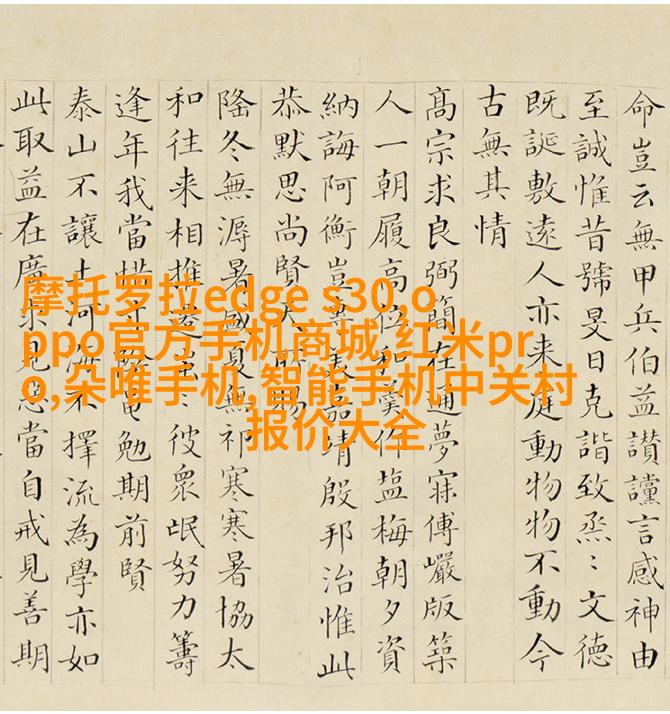 命豈云無甲兵伯益讃讜言感神由
至誠惟昔號旻日克諧致烝〻文德
既誕敷遠人亦来庭動物物不動今
古無其情
高宗求良弼簡在通夢寐傅嚴版築
人一朝履高位和羹作塩梅朝夕資
納誨阿衡豈美嘉靖殷邦治惟此
恭默思尚賢
隆冬無溽暑盛夏無祁寒寒暑協太
和往来相推〻彼衆氓努力籌
逢年我當惜寸勉期前賢
泰山不讓土河海不擇流為學亦如
此取益在廣求見惡當自戒見善期
摩托罗拉edge s30,o
ppo官方手机商城,红米pr
o,朵唯手机,智能手机中关村
报价大全